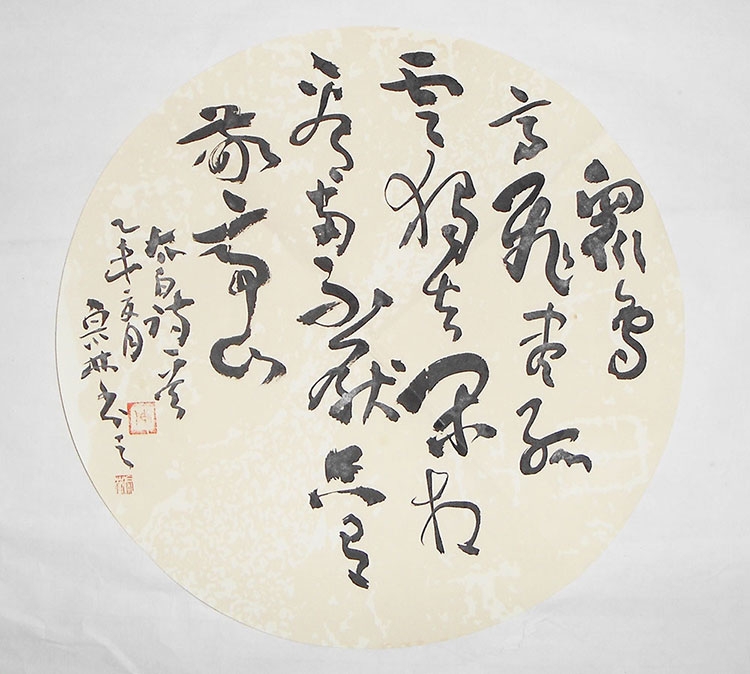 眾鳥
高飛盡孤
雲獨去閑相
看兩不厭只有
敬亭山
太白詩一首
乙未月
林書